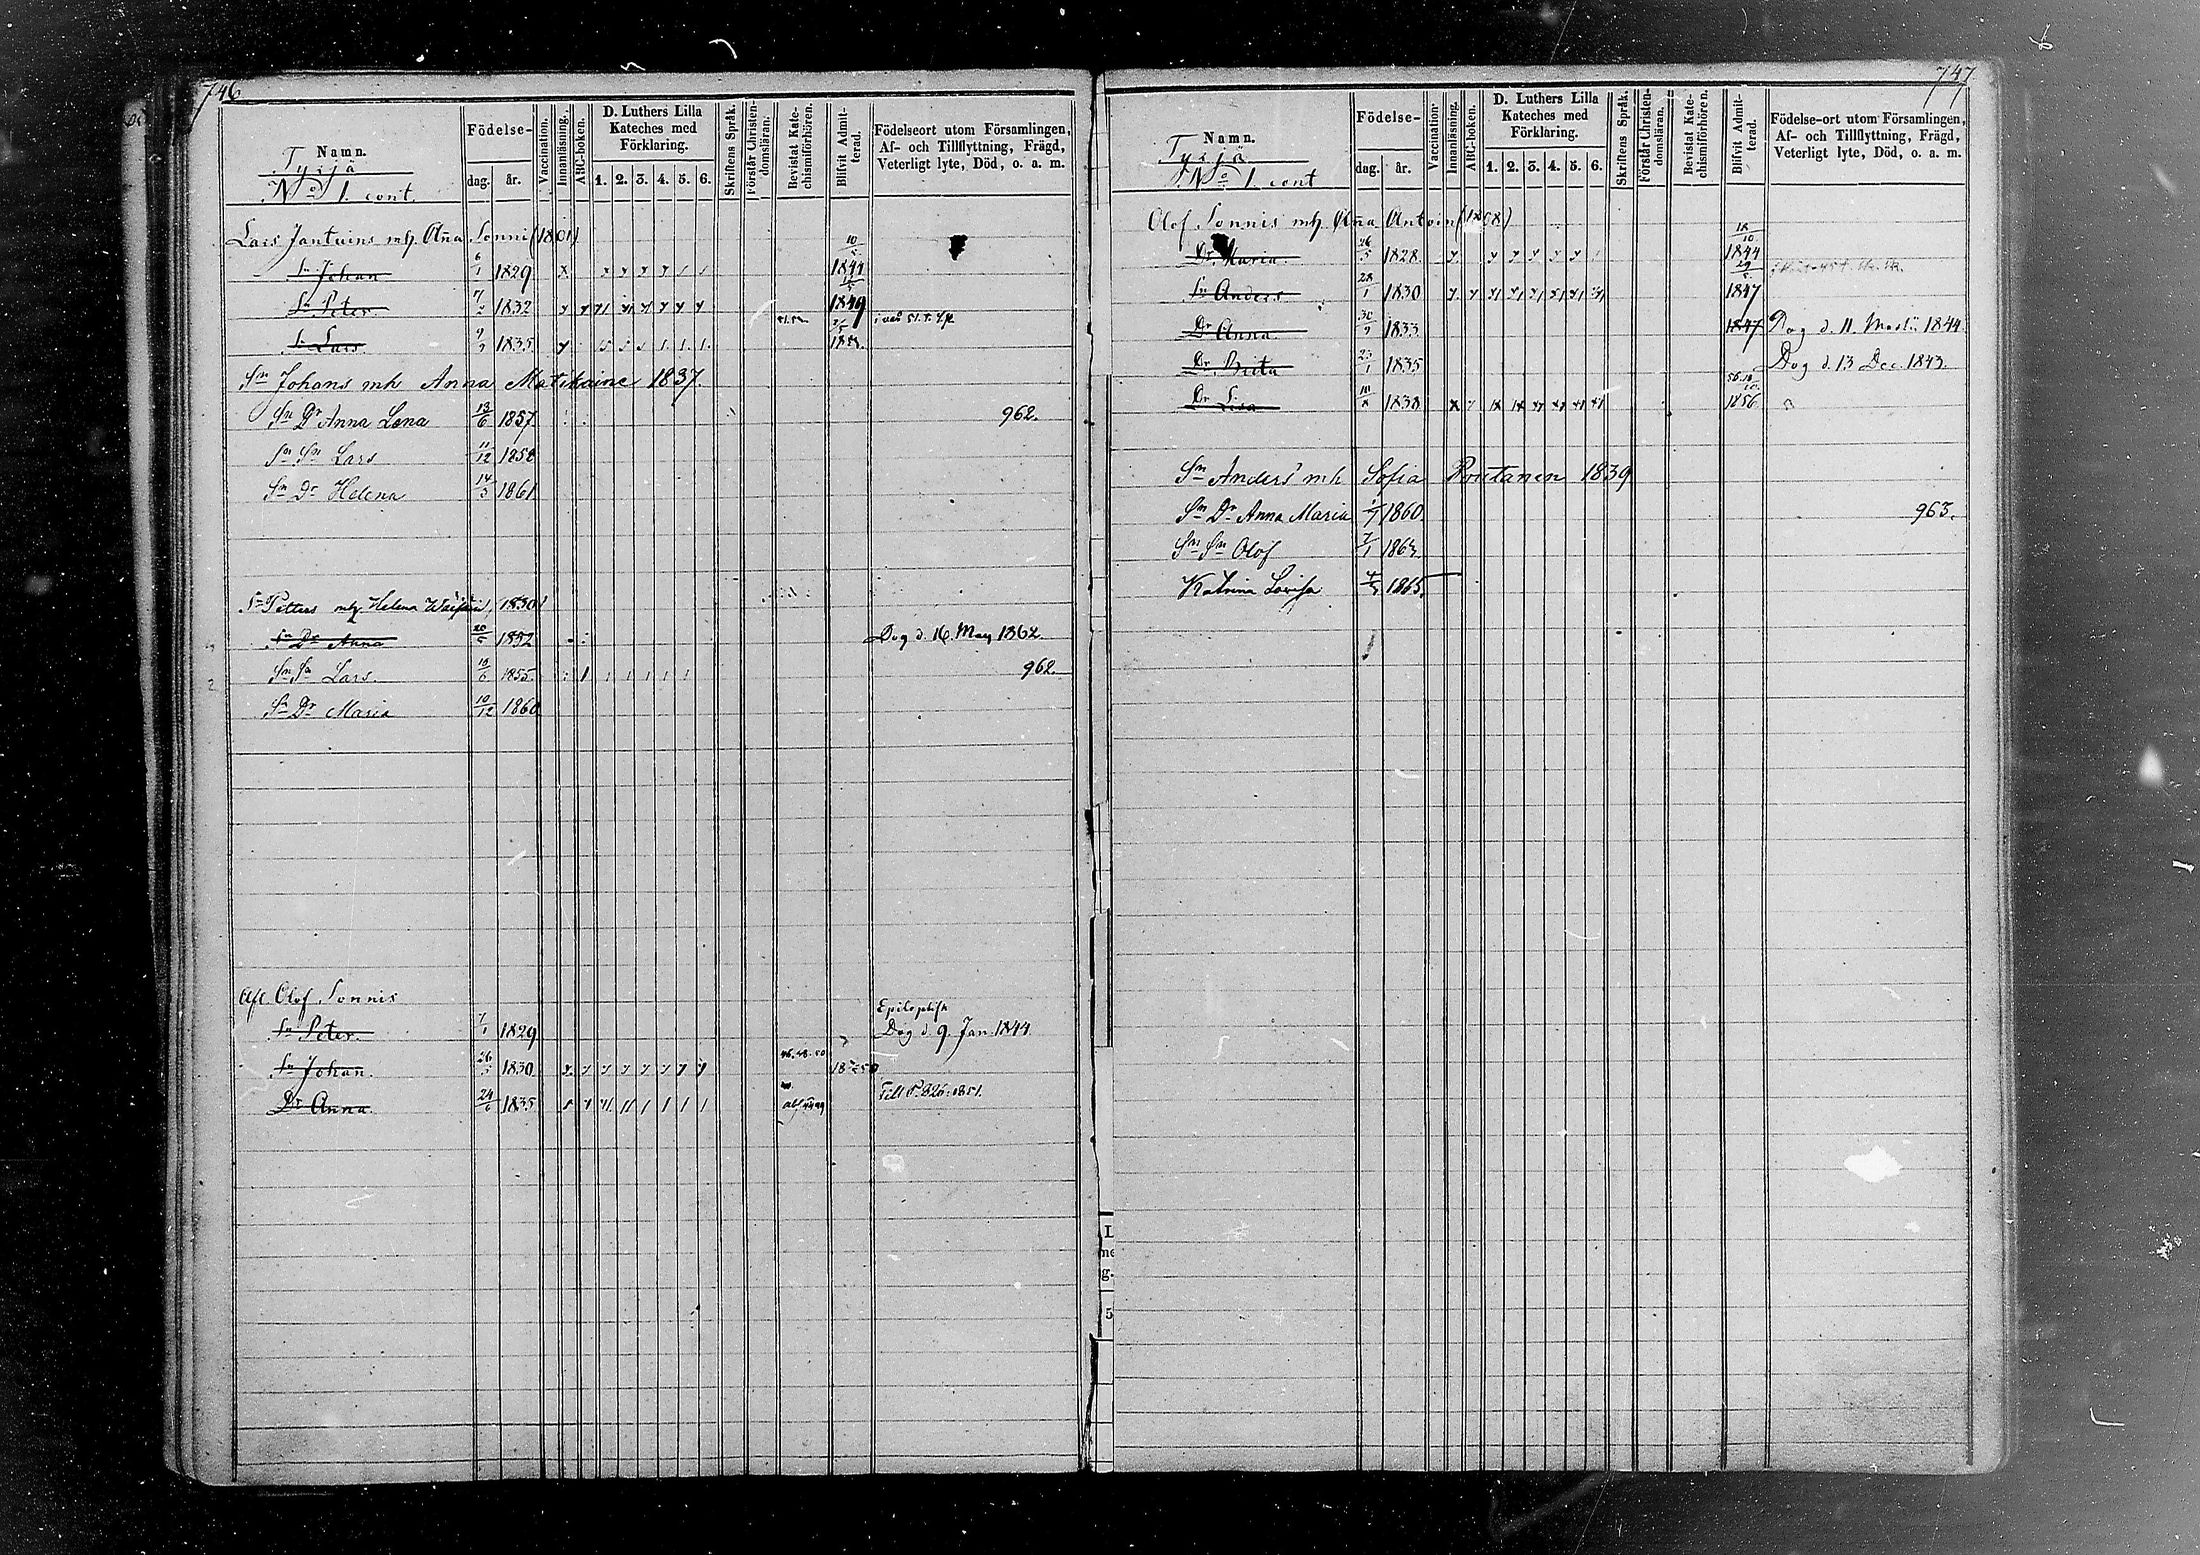 746
Namn.
Tyrjä
No 1. cont.
Födelse-
dag. år.
Vaccination.
Innanläsning.
ABC-boken.
D. Luthers Lilla Kateches med Förklaring.
1. 2. 3. 4. 5. 6.
Skriftens Språk.
Förstår Christendomsläran.
Bevistat Katechismiförhören.
Blifvit Admitterad.
Födelseort utom Församlingen,
Af- och Tillflyttning, Frägd,
Veterligt lyte, Död, o. a. m.
Lars Jantuins mh. Aña Sonni (1801)
Sn Johan 6/1 1829 10/5 1844
Sn Peter 7/2 1832 1849
Sn Lars 1835
Sn Johans mh Anna Matikaine 1837.
Sn Dr Anna Lena 13/6 1857. 962.
Sn Sn Lars 11/12 1858
Sn Dr Helena 14/3 1861
Sn Petters mh. Helena (1830)
Sn Dr Anna 20/5 1852 Dog d. 16. May 1862.
Sn Sn Lars. 18/6 1855. 962.
Sn Dr Maria 10/12 1860
Afl. Olof Sonnis
Epileptisk
Sn Peter 1/1 1829 Dog d. 9. Jan. 1844.
Sn Johan. 26/3 1830 46.48.50
Dr Anna 24/6 1835 Till P. 326: 1851.
747
Namn.
Tyrjä
No 1. cont
Födelse-
dag. år.
Vaccination
Innanläsning.
ABC-boken.
D. Luthers Lilla Kateches med Förklaring.
1. 2. 3. 4. 5. 6.
Skriftens Språk.
Förstår Christendomsläran.
Bevistat Katechismiförhören.
Blifvit Admitterad.
Födelse-ort utom Församlingen,
Af- och Tillflyttning, Frägd,
Veterligt lyte, Död, o. a. m.
Olof Sonnis mh. Aña Antoin (1808)
Dr Maria 26/5 1828 18/10 1844
Sn Anders 28/1 1830 29/5 1847
Dr Anna 30/9 1833 1847 Dog d. 11. Martii 1844
Dr Brita 23/1 1835 Dog d. 13 Dec. 1843.
Dr Lisa 10/8 1838 1856
Sn Anders mh Sofia Poutanen 1839
Sn Dr Anna Maria 1860 963.
Sn Sn Olof 7/1 1863
Katrina Lovisa 1865.